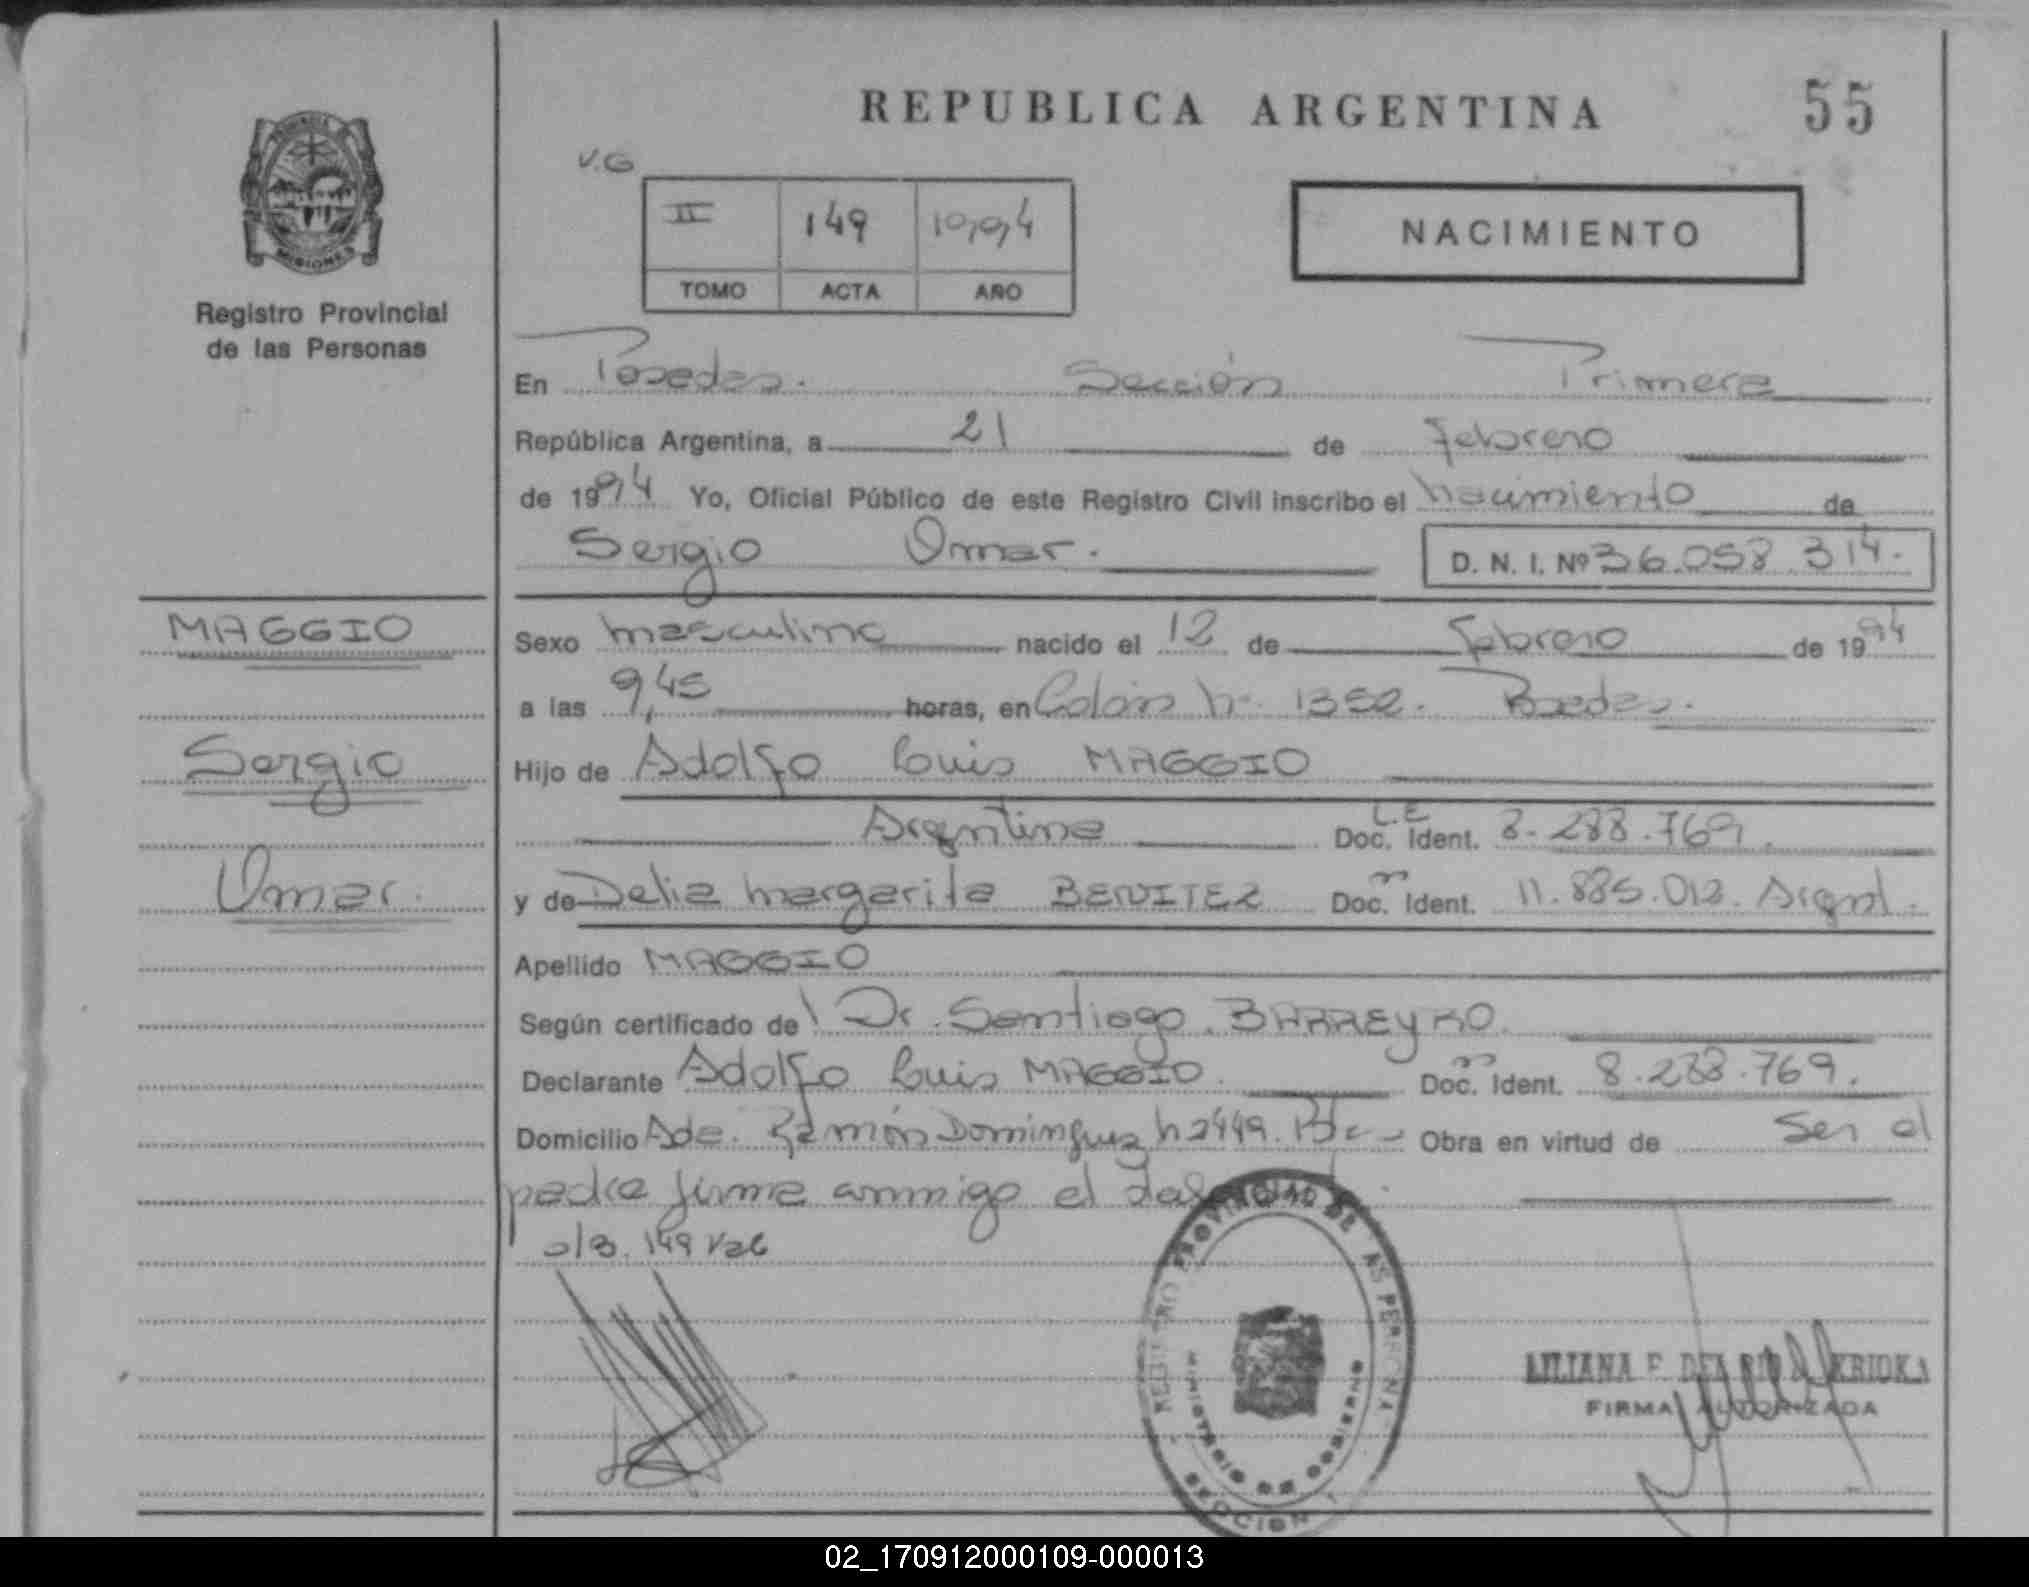 REPUBLICA ARGENTINA
55
V.G
II 149 1994
TOMO ACTA AÑO
NACIMIENTO
PROVINCIA DE
MISIONES
Registro Provincial
de las Personas
En Posadas. Sección Primera
República Argentina, a 21 de febrero
de 1994 Yo, Oficial Público de este Registro Civil inscribo el nacimiento de
Sergio Omar. D. N. I. Nº 36.058.314.
MAGGIO
Sergio
Omar.
Sexo masculino nacido el 12 de febrero de 1994
a las 9,45 horas, en Colón nº 1352. Posadas.
Hijo de Adolfo Luis MAGGIO
Argentina L.E Doc. Ident. 8.288.769.
y de Delia Margarita BENITEZ Doc. Ident. 11.885.012. Argnt.
Apellido MAGGIO
Según certificado de Dr. Santiago BARREYRO.
Declarante Adolfo Luis MAGGIO. Doc. Ident. 8.288.769.
Domicilio Ramón Dominguez 2449. Obra en virtud de Ser el
padre firma conmigo el
149
REGISTRO PROVINCIAL DE LAS PERSONAS
MINISTERIO DE GOBIERNO
SECCION 1
LILIANA F. DEL
FIRMA AUTORIZADA
02_170912000109-000013